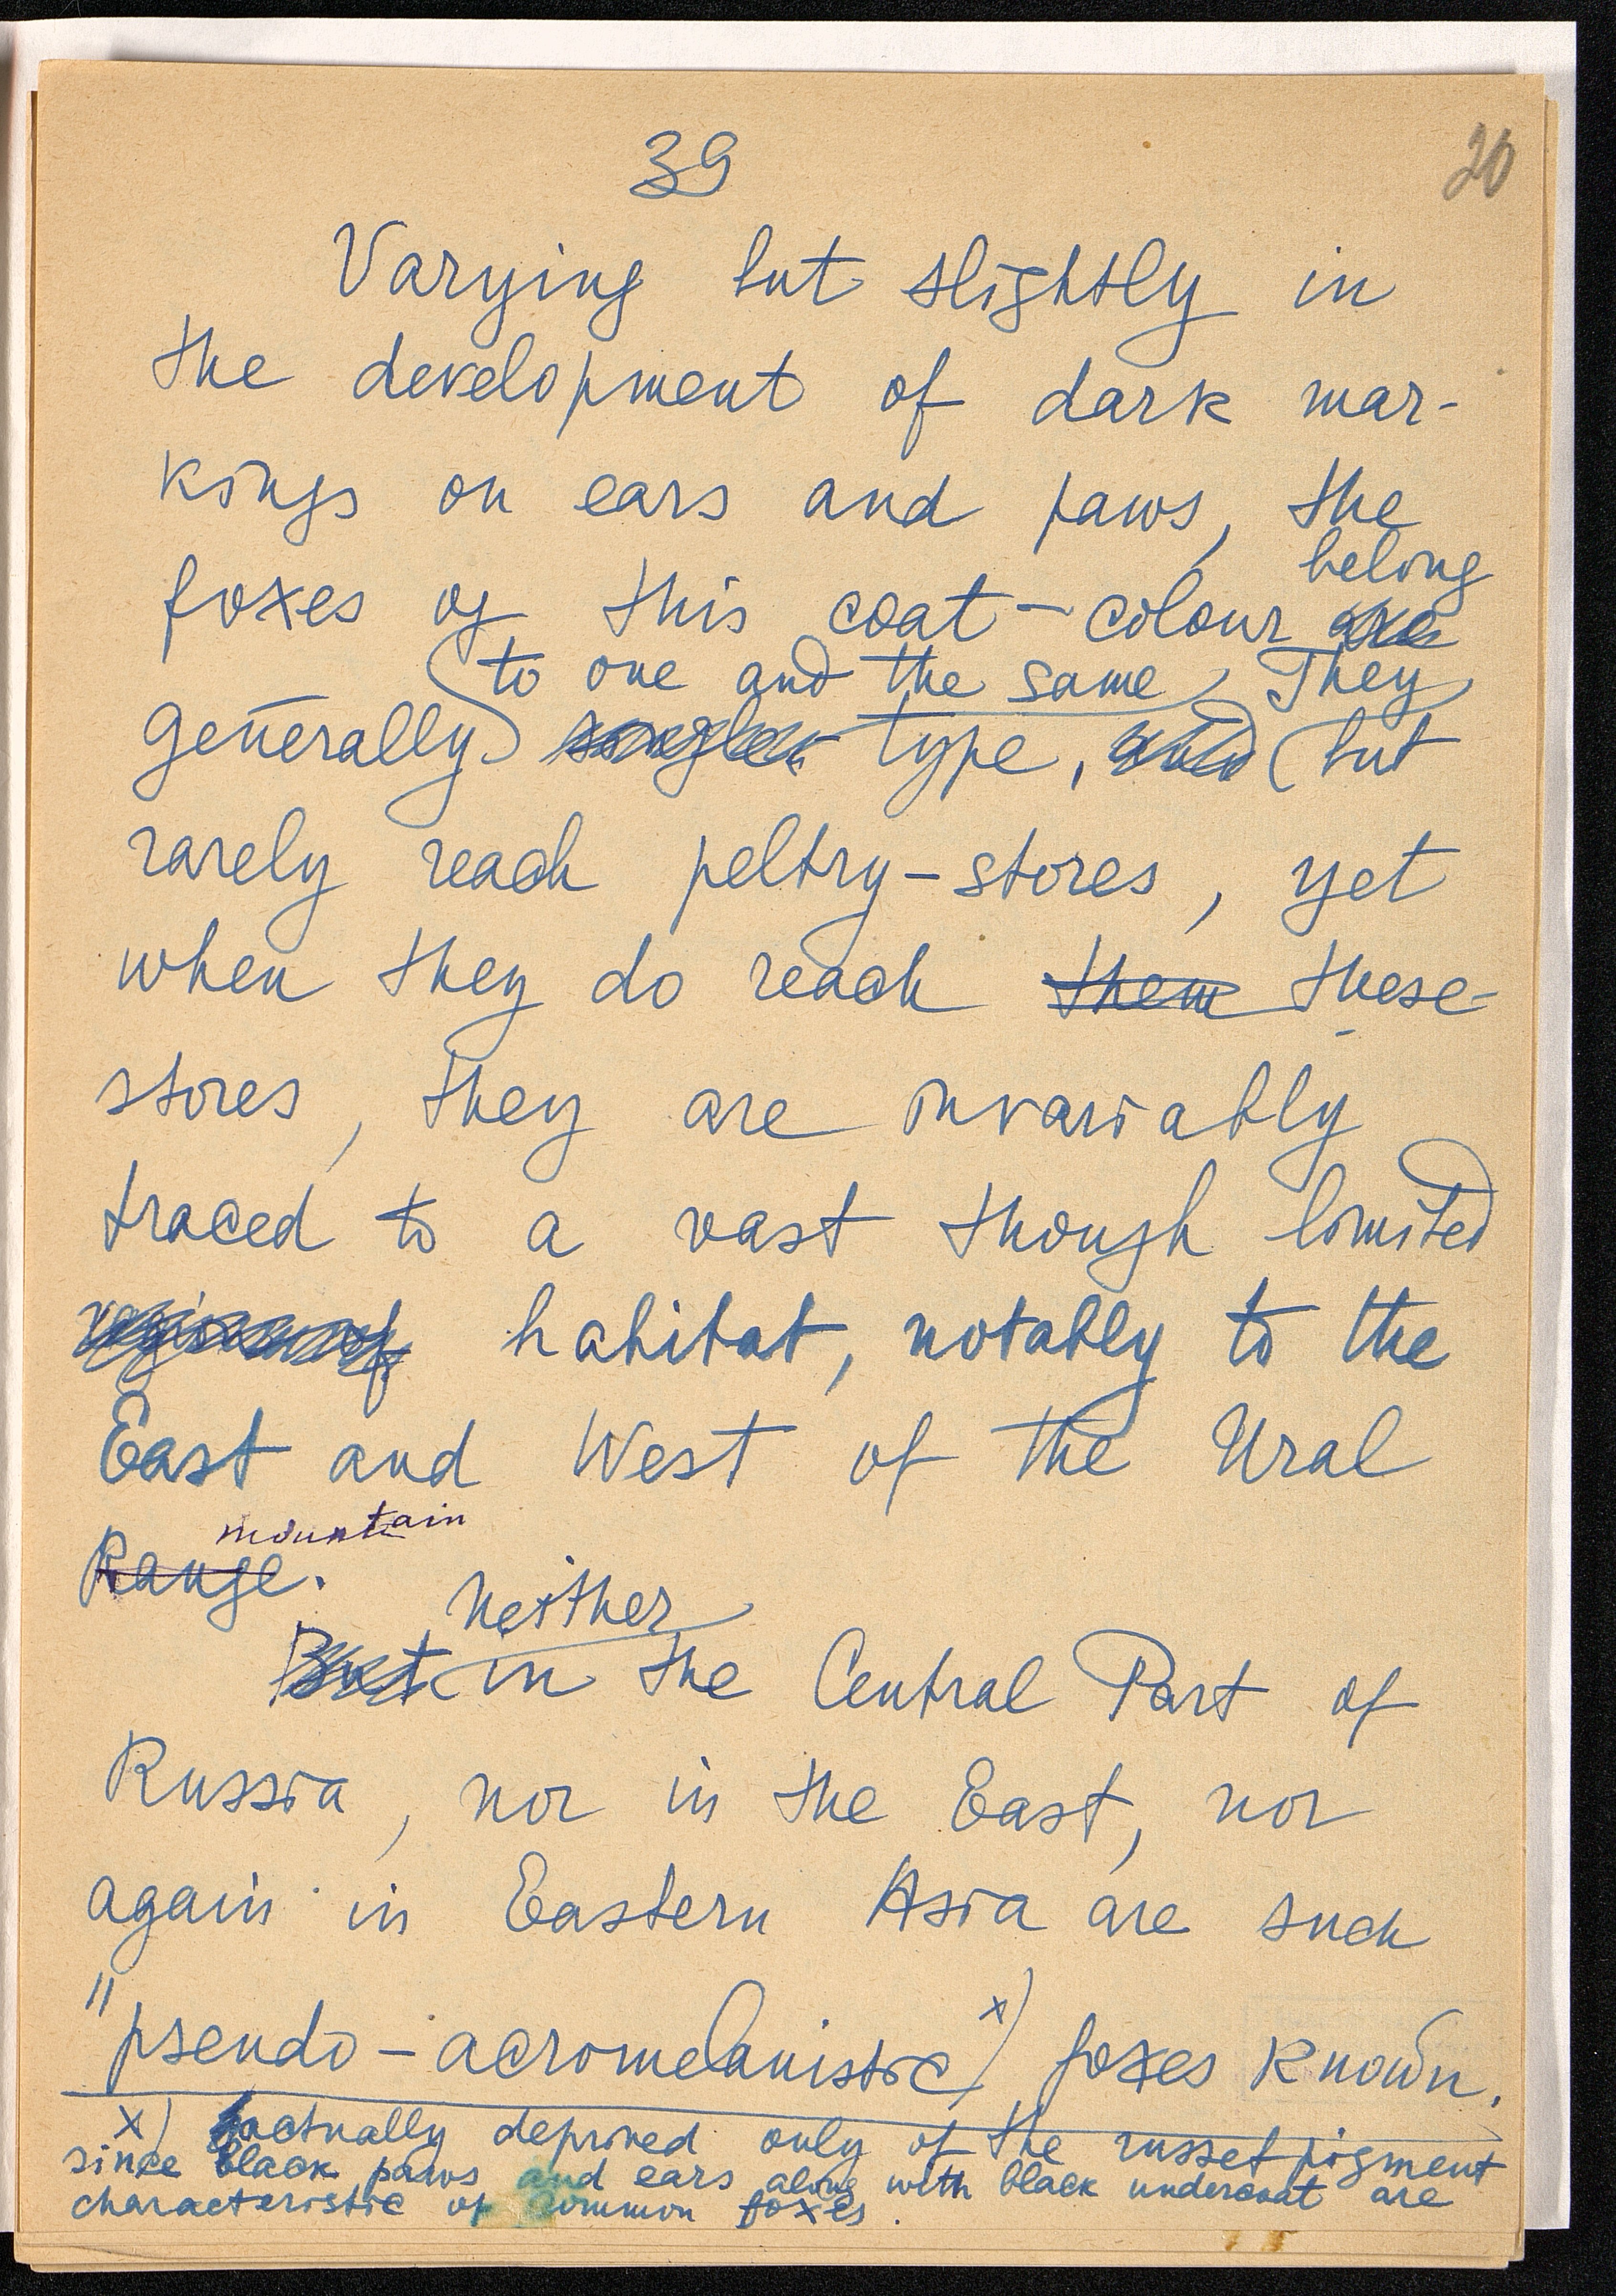 39
20
Varying but slightly in
the development of dark mar-
kings on ears and paws, the
belong
foxes of this coat-colour are
to one and the same. They
generally type, and but
rarely reach peltry-stores, yet
when they do reach them these
stores, they are invariably
traced to a vast though limited
habitat, notably to the
East and West of the Ural
mountain
Range.
Neither
But in the Central Part of
Russia, nor in the East, nor
again in Eastern Asia are such
"pseudo-acromelanistic x) foxes known.
x) actually deprived only of the russet pigment
since black paws and ears along with black undercoat are
characteristic of common foxes.